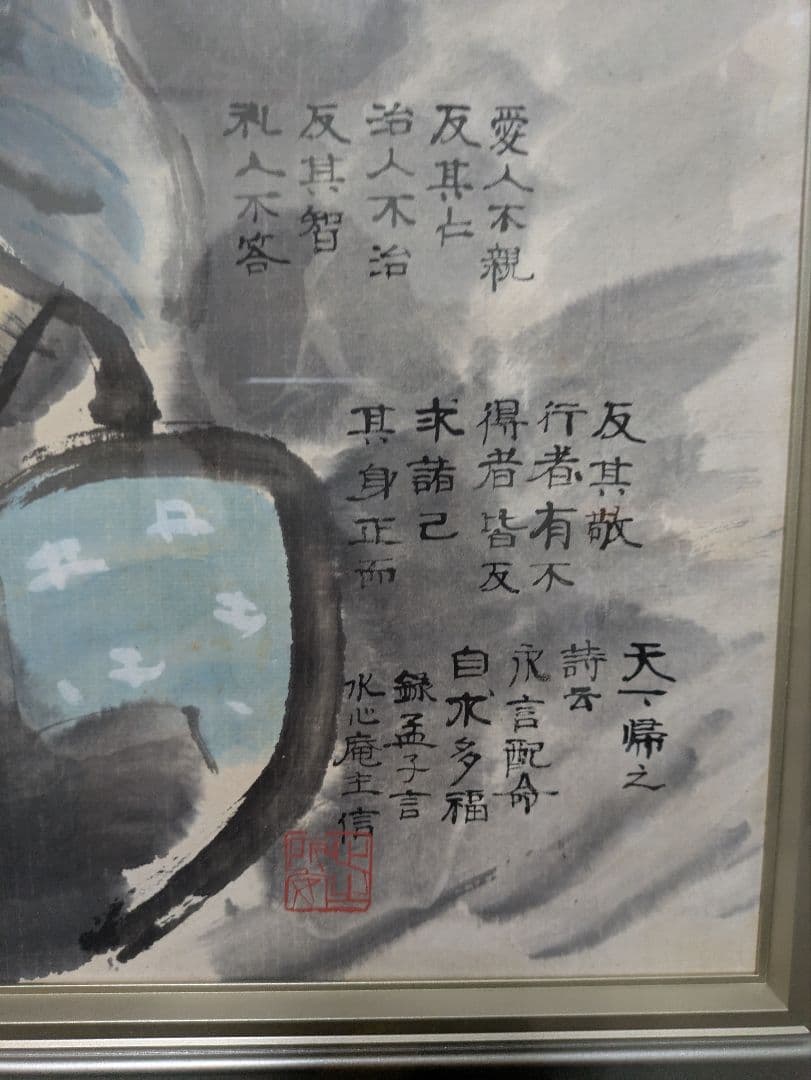 愛人不親
反其仁
治人不治
反其智
礼人不答
反其敬
行者有不
得者皆反
求諸己
其身正而
天下帰之
詩云
永言配命
自求多福
録孟子言
水心庵主信